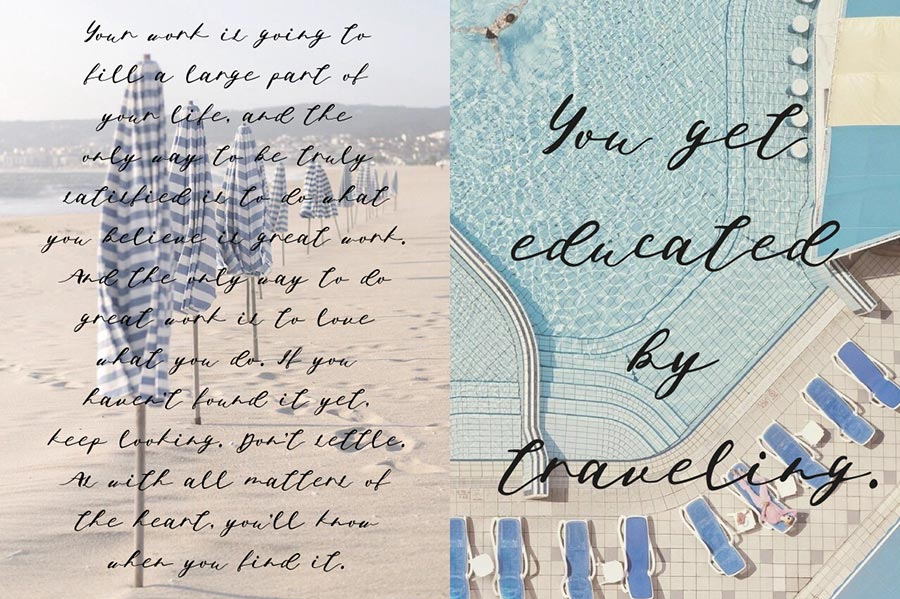 Your work is going to
fill a large part of
your life, and the
only way to be truly
satisfied is to do what
you believe is great work.
And the only way to do
great work is to love
what you do. If you
haven't found it yet,
keep looking. Don't settle.
As with all matters of
the heart, you'll know
when you find it.
You get
educated
by
traveling.